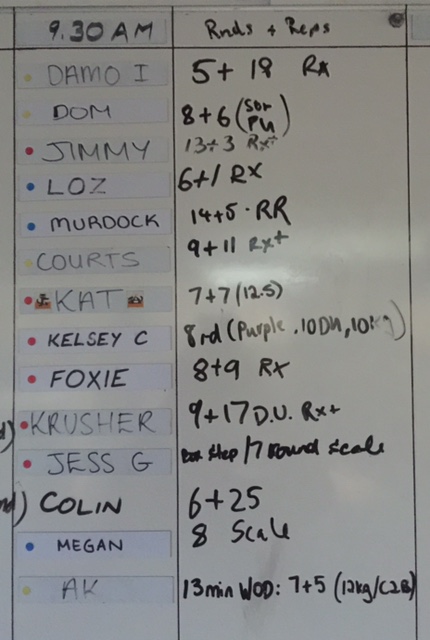 9.30 AM Rnds + Reps
DAMO I 5+18 Rx
DOM 8+6 (
PU)
JIMMY 13+3 Rx+
LOZ 6+1 RX
MURDOCK 14+5 · RR
COURTS 9+11 Rx+
KAT 7+7 (12.5)
KELSEY C 8rd (Purple, 10DU, 10kg)
FOXIE 8+9 Rx
KRUSHER 9+17 D.U. Rx+
JESS G Box Step / 7 round scale
COLIN 6+25
MEGAN 8 Scale
AK 13min WOD: 7+5 (12kg/C2B)